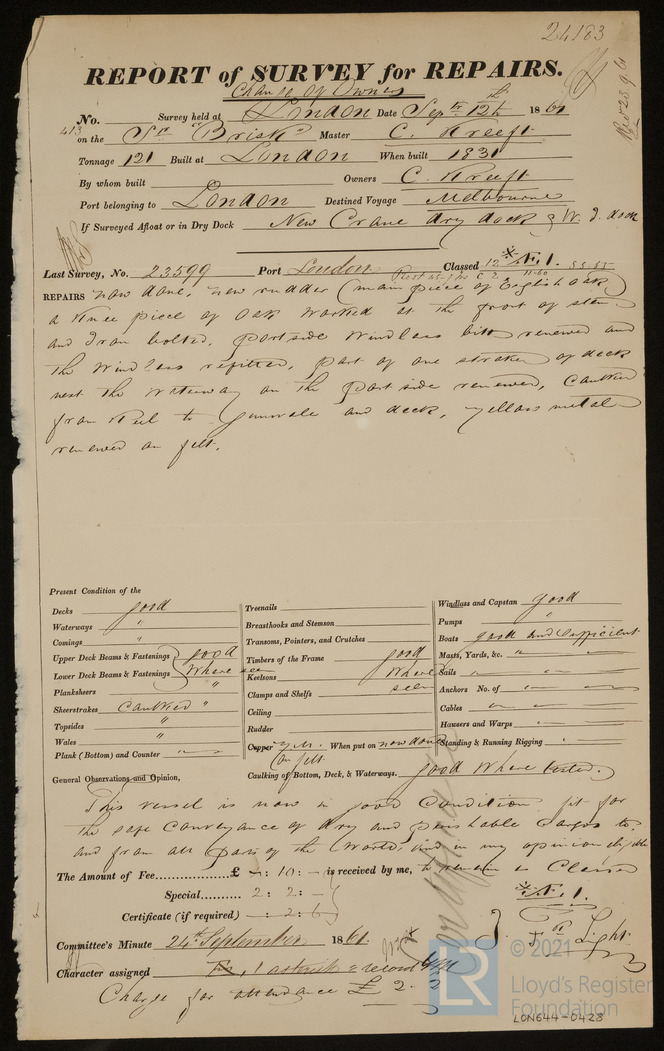 24183
REPORT of SURVEY for REPAIRS.
Change of Owners
No. 413 Survey held at London Date Septr 12th 1861
on the Sr "Brisk" Master C. Kreeft
Tonnage 121 Built at London When built 1831
By whom built Owners C. Kreeft
Port belonging to London Destined Voyage Melbourne
If Surveyed Afloat or in Dry Dock New Crane dry dock & W. I. dock
Last Survey, No. 23599 Port London Classed 12 Æ 1.
REPAIRS now done, new rudder (main piece of English oak)
a knee piece of oak worked at the front of stem
and Iron bolted, portside Windlass bitt renewed and
the Windlass refitted, part of one strake of deck
next the waterway on the port side renewed, Caulked
from Keel to Gunwale and deck, yellow metal
renewed on felt.
Present Condition of the
Decks good
Waterways "
Comings "
Upper Deck Beams & Fastenings good
Lower Deck Beams & Fastenings Where seen
Planksheers "
Sheerstrakes Caulked "
Topsides "
Wales "
Plank (Bottom) and Counter "
Treenails
Breasthooks and Stemson
Transoms, Pointers, and Crutches
Timbers of the Frame good
Keelsons Where
Clamps and Shelfs seen
Ceiling
Rudder
Copper y.m. When put on now done
on felt
Caulking of Bottom, Deck, & Waterways. good Where tested.
Windlass and Capstan good
Pumps "
Boats good and Sufficient
Masts, Yards, &c. "
Sails "
Anchors No. of "
Cables "
Hawsers and Warps "
Standing & Running Rigging "
General Observations and Opinion,
This vessel is now in good Condition fit for
the safe Conveyance of dry and perishable Cargos to
and from all parts of the World, and in my opinion eligible
The Amount of Fee £ -: 10: - is received by me, to remain as Classed
Special 2: 2: - Æ 1.
Certificate (if required) -: 2: 6
Committee's Minute 24th September 1861. Light
Character assigned
Charge for attendance £ 2. 2
© 2021
LR
Lloyd's Register
Foundation
LON644-0428